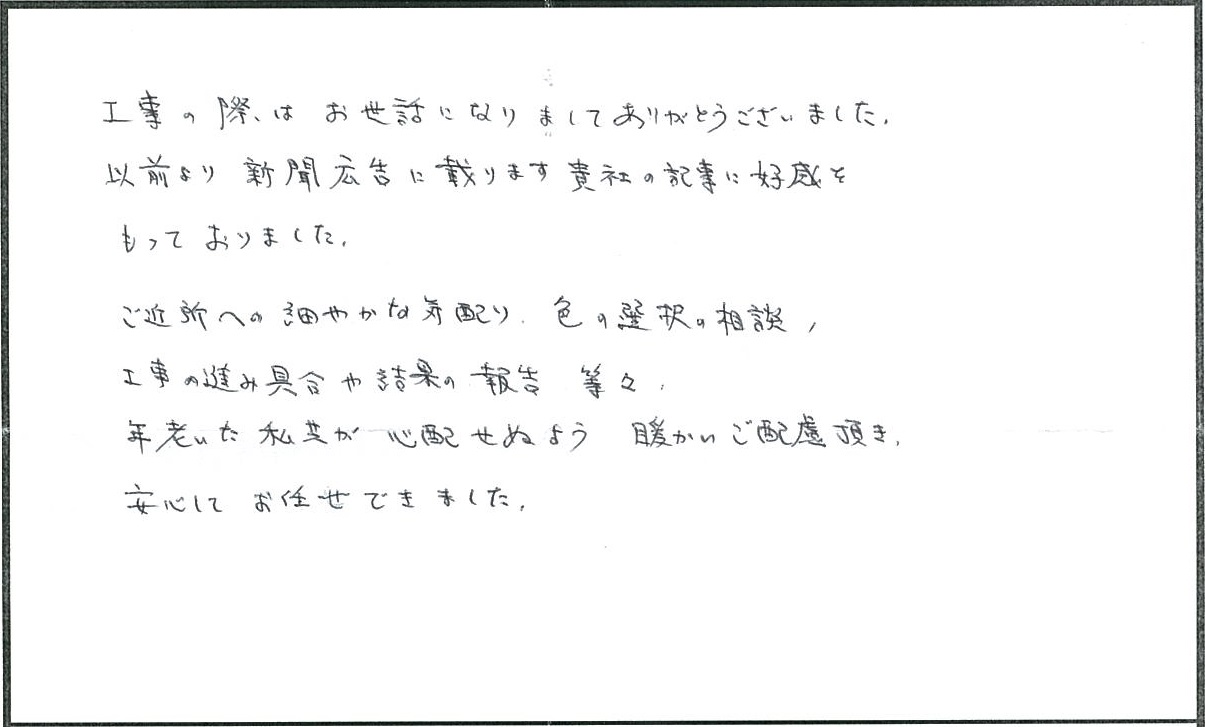 工事の際、は お世話になりましてありがとうございました。
以前より 新聞広告に載ります貴社の記事に好感を
もって おりました。
ご近所への細やかな気配り、色の選択の相談、
工事の進み具合や結果の報告 等々、
年老いた私共が心配せぬよう 暖かいご配慮頂き、
安心して お任せできました。